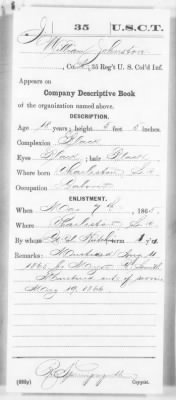 J | 35 | U.S.C.T.
William Johnston
, Co. , 35 Reg't U. S. Col'd Inf.
Appears on
Company Descriptive Book
of the organization named above.
DESCRIPTION.
Age 18 years; height 5 feet inches.
Complexion Black
Eyes Black; hair Black
Where born Charleston S C
Occupation Laborer
ENLISTMENT.
When May 7th, 1865.
Where Charleston S C
By whom term y'rs.
Remarks: Mustered Aug 11
1865 by
Mustered out of service
May 19, 1866
Copyist.